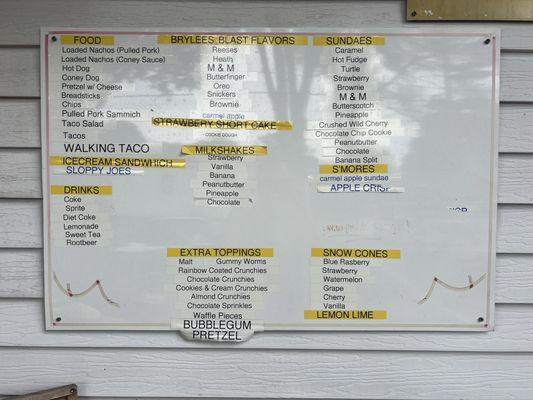 FOOD
Loaded Nachos (Pulled Pork)
Loaded Nachos (Coney Sauce)
Hot Dog
Coney Dog
Pretzel w/ Cheese
Breadsticks
Chips
Pulled Pork Sammich
Taco Salad
Tacos
WALKING TACO
ICECREAM SANDWHICH
SLOPPY JOES
DRINKS
Coke
Sprite
Diet Coke
Lemonade
Sweet Tea
Rootbeer
BRYLEES BLAST FLAVORS
Reeses
Heath
M & M
Butterfinger
Oreo
Snickers
Brownie
carmel apple
STRAWBERRY SHORT CAKE
COOKIE DOUGH
MILKSHAKES
Strawberry
Vanilla
Banana
Peanutbutter
Pineapple
Chocolate
EXTRA TOPPINGS
Malt Gummy Worms
Rainbow Coated Crunchies
Chocolate Crunchies
Cookies & Cream Crunchies
Almond Crunchies
Chocolate Sprinkles
Waffle Pieces
BUBBLEGUM
PRETZEL
SUNDAES
Caramel
Hot Fudge
Turtle
Strawberry
Brownie
M & M
Butterscotch
Pineapple
Crushed Wild Cherry
Chocolate Chip Cookie
Peanutbutter
Chocolate
Banana Split
S'MORES
carmel apple sundae
APPLE CRISP
SNOW CONES
Blue Rasberry
Strawberry
Watermelon
Grape
Cherry
Vanilla
LEMON LIME